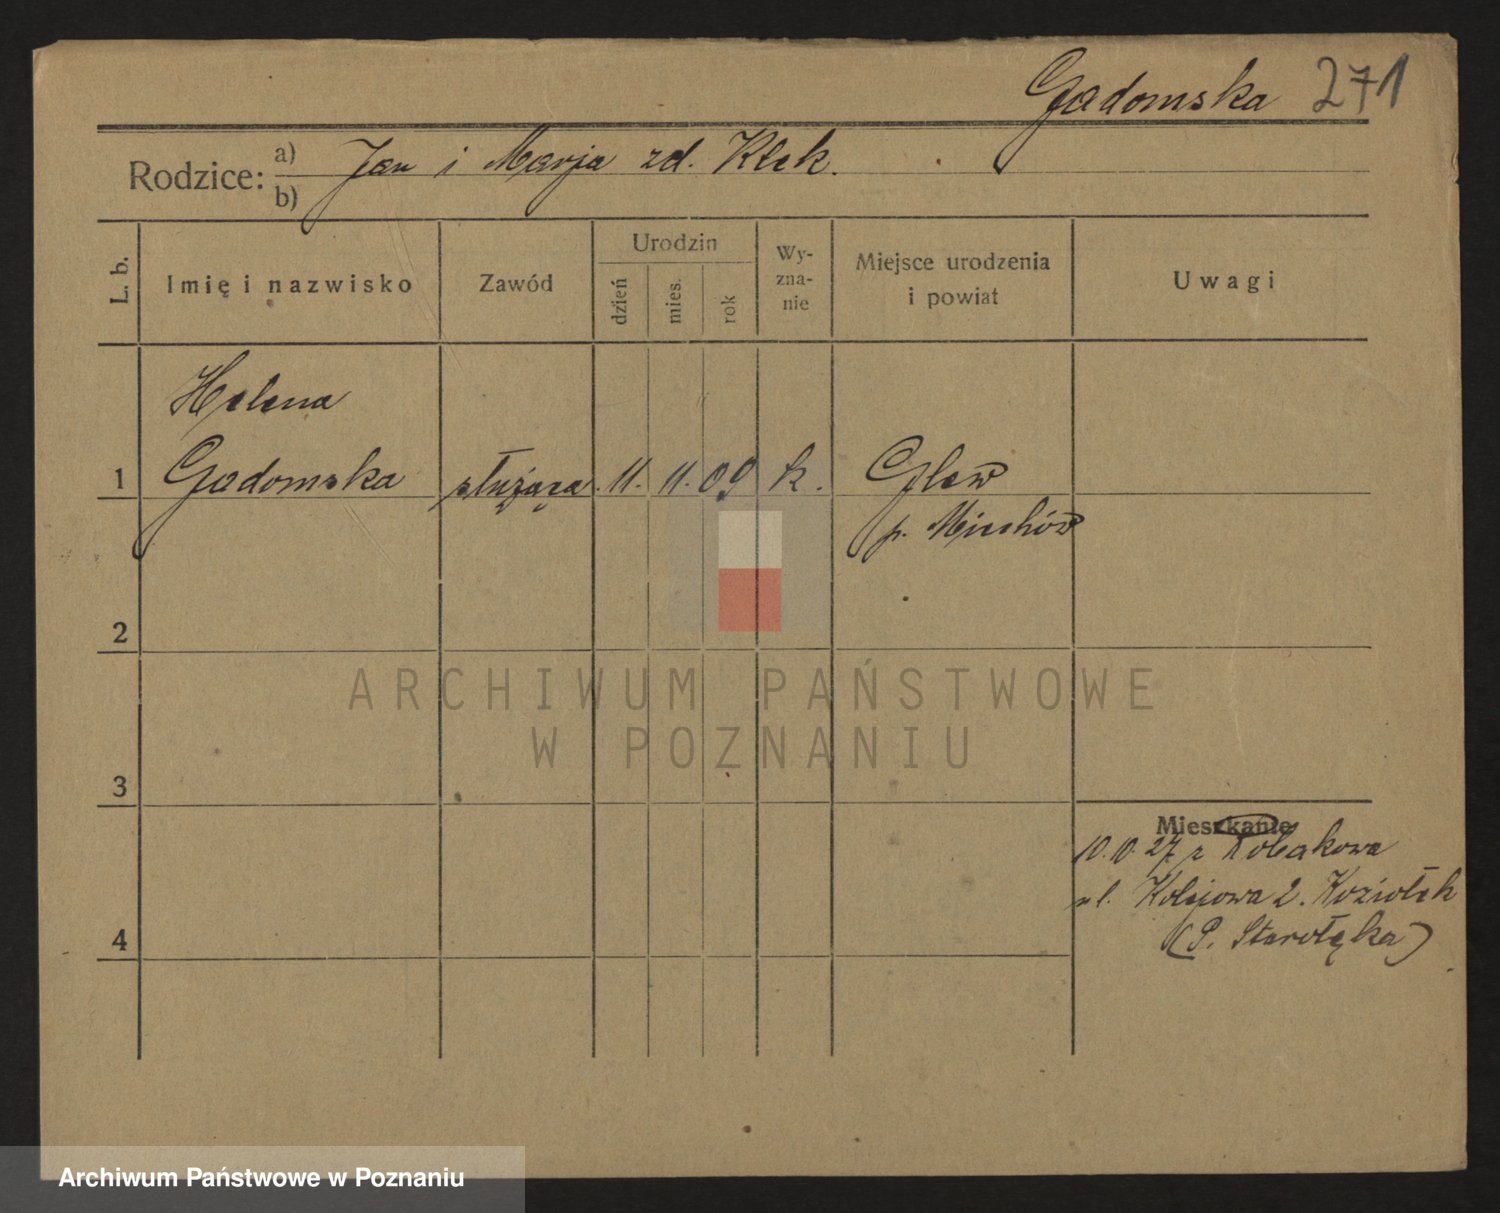 Gadomska 271
Rodzice: a) Jan i Marja zd. Klek.
b)
L. b.
Imię i nazwisko
Zawód
Urodzin
dzień
mies.
rok
Wy-
zna-
nie
Miejsce urodzenia
i powiat
Uwagi
Helena
1 Gadomska służąca 11. 11. 09 k. Glew
p. Miechów
2
ARCHIWUM PAŃSTWOWE
W POZNANIU
3
Mieszkanie
10.10.27 z
ul. Kolejowa 2. Koziołek
(P. Starołęka)
4
Archiwum Państwowe w Poznaniu